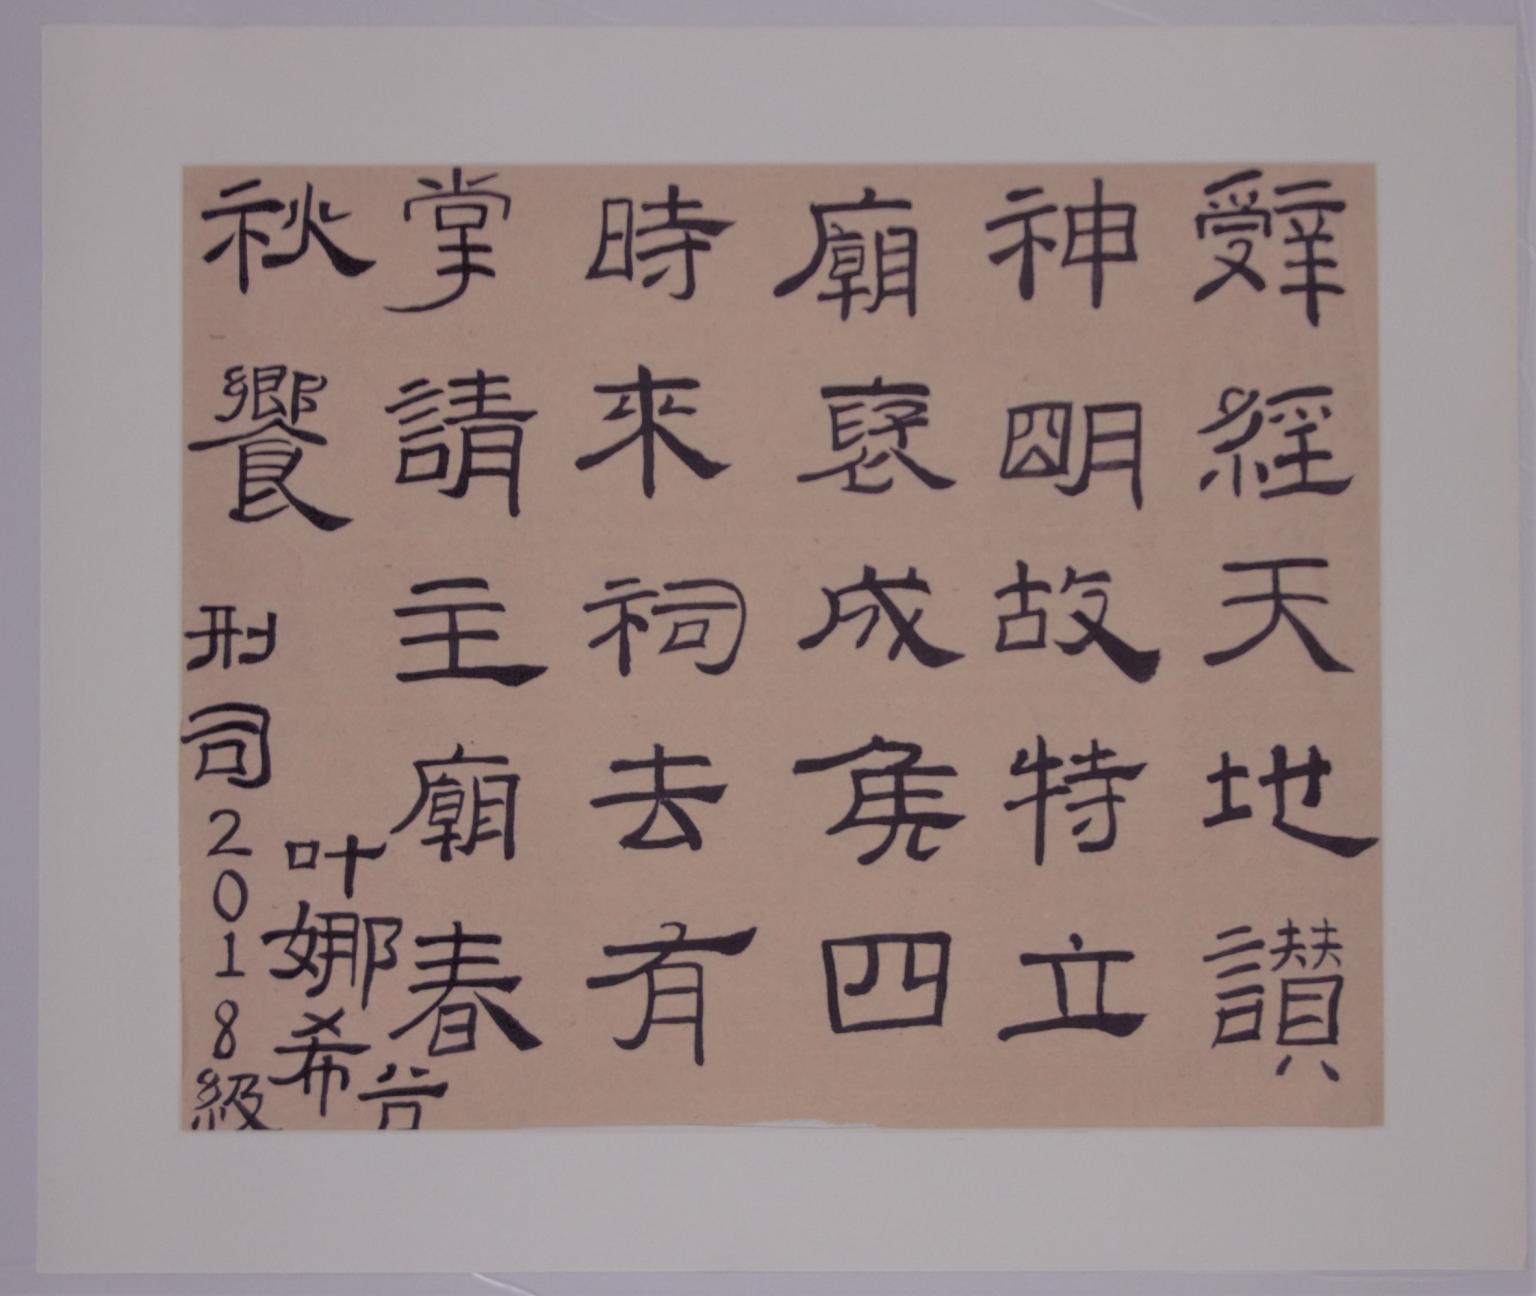 辭經天地讃
神朙故特立
廟襃成侯四
時來祠去有
掌請主廟春
秋饗
刑司2018級
叶娜希谷